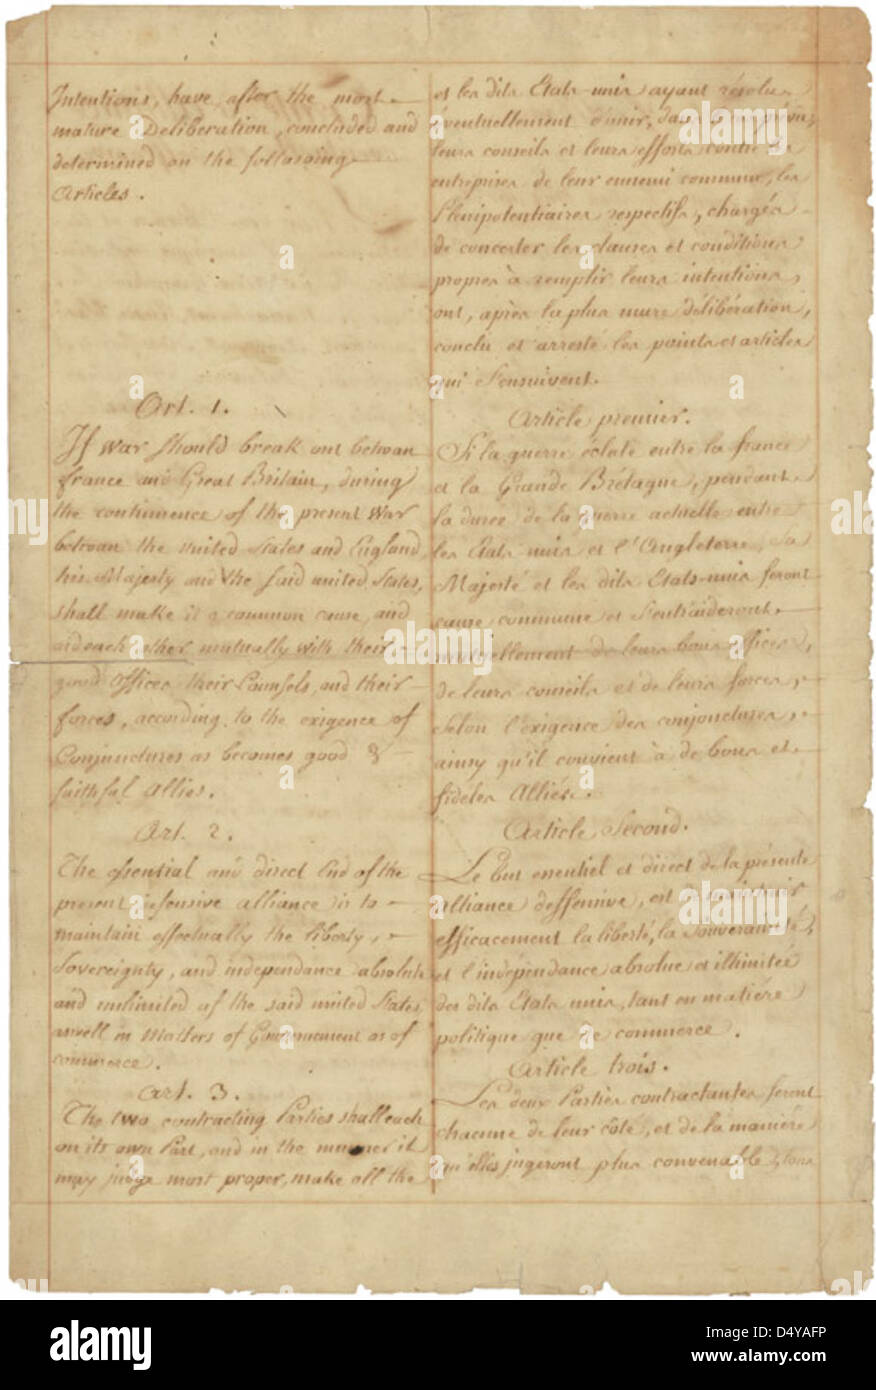 Intentions, have after the most
mature Deliberation, concluded and
determined on the following
Articles.
Art. 1.
If War Should break out betwan
france and Great Britain, during
the continuence of the present War
betwan the united States and England,
his Majesty and the said united States,
shall make it a common cause, and
aid each other mutually with their
good Offices their Counsels, and their
forces, according to the exigence of
Conjunctures as becomes good &
faithful Allies.
Art. 2.
The essential and direct End of the
present defensive alliance is to
maintain effectually the liberty,
Sovereignty, and independance absolute
and unlimited of the said united States,
aswell in Matters of Gouvernement as of
commerce.
Art. 3.
The two contracting Parties shall each
on its own Part, and in the manner it
may judge most proper, make all the
et les dits Etats-unis ayant résolu
éventuellement d'unir, dans
leurs conseils et leurs efforts contre les
entreprises de leur ennemi commun, les
Plenipotentiaires respectifs, chargés
de concerter les clauses et conditions
propres à remplir leurs intentions,
ont, après la plus mure délibération,
conclu et arresté les points et articles
qui S'ensuivent.
Article premier.
Si la guerre éclate entre la france
et la Grande Brétagne, pendant
la durée de la guerre actuelle entre
les Etats-unis et l'Angleterre, Sa
Majesté et les dits Etats-unis feront
cause commune et S'entraideront
mutuellement de leurs bons offices,
de leurs conseils et de leurs forces,
Selon l'exigence des conjonctures,
ainsy qu'il convient à de bons et
fideles Alliés.
Article Second.
Le but essentiel et direct de la présente
alliance deffensive, est de maintenir
efficacement la liberté, la Souveraineté,
et l'indépendance absolue et illimitée
des dits Etats unis, tant en matiére
politique que de commerce.
Article trois.
Les deux Parties contractantes feront
chacune de leur côté, et de la maniére
qu'elles jugeront plus convenable, tous
alamy
alamy
Image ID: D4YAFP
www.alamy.com